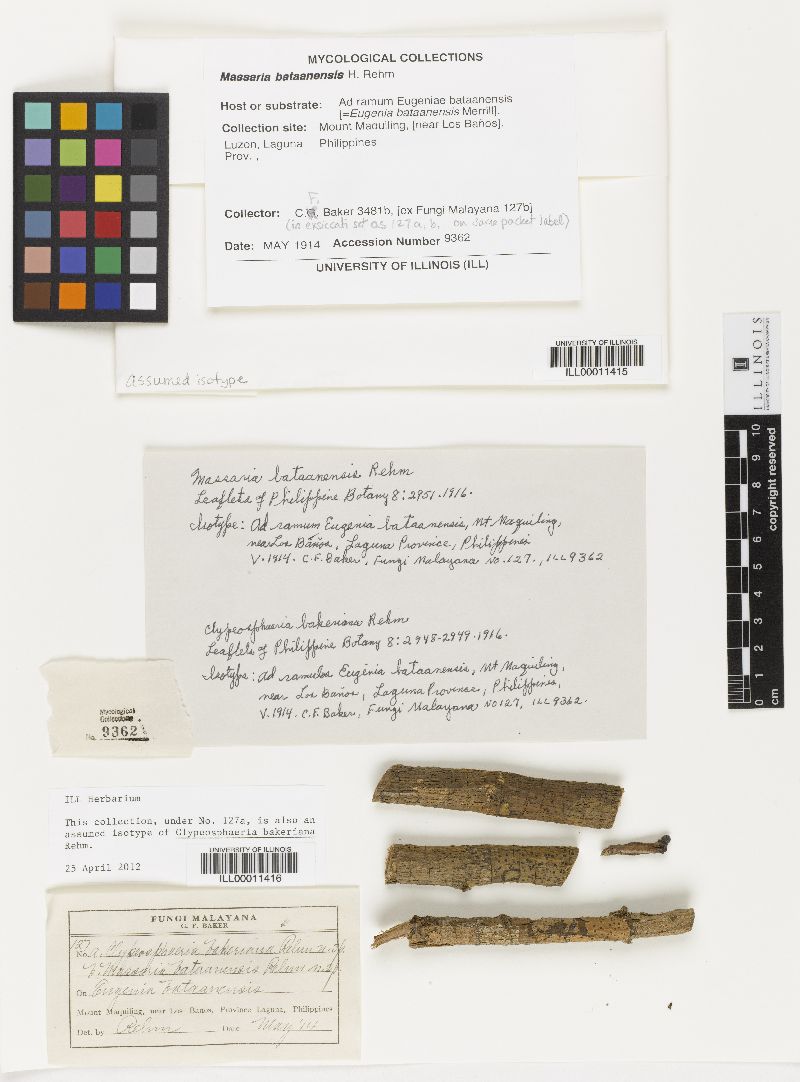 MYCOLOGICAL COLLECTIONS
Massaria bataanensis H. Rehm
Host or substrate: Ad ramum Eugeniae bataanensis
[=Eugenia bataanensis Merrill].
Collection site: Mount Maquiling, [near Los Baños].
Luzon, Laguna Philippines
Prov. ,
F.
Collector: C. Baker 3481b, [ex Fungi Malayana 127b]
(in exsiccati set as 127a, b, on same packet label)
Date: MAY 1914 Accession Number 9362
UNIVERSITY OF ILLINOIS (ILL)
UNIVERSITY OF ILLINOIS
ILL00011415
assumed isotype
ILLINOIS
Massaria bataanensis Rehm
Leaflets of Philippine Botany 8: 2951. 1916.
Isotype: Ad ramum Eugenia bataanensis, Mt Maquiling,
near Los Bāños, Laguna Province, Philippines
V. 1914. C. F. Baker, Fungi Malayana No. 127., ILL 9362
Clypeosphaeria bakeriana Rehm
Leaflets of Philippine Botany 8: 2948-2949. 1916.
Isotype: ad ramulos Eugenia bataanensis, Mt Maquiling,
near Los Baños, Laguna Province, Philippines,
V. 1914. C. F. Baker, Fungi Malayana No 127, ILL 9362.
0 1 2 3 4 5 6 7 8 9 10
cm
copyright reserved
Mycological
Collections
No. 9362
ILL Herbarium
This collection, under No. 127a, is also an
assumed isotype of Clypeosphaeria bakeriana
Rehm.
25 April 2012
UNIVERSITY OF ILLINOIS
ILL00011416
FUNGI MALAYANA
C. F. BAKER
No. 127 a. Clypeosphaeria bakeriana Rehm n. sp.
b. Massaria bataanensis Rehm n. sp.
On Eugenia bataanensis
Mount Maquiling, near Los Baños, Province Laguna, Philippines
Det. by Rehm Date May '14